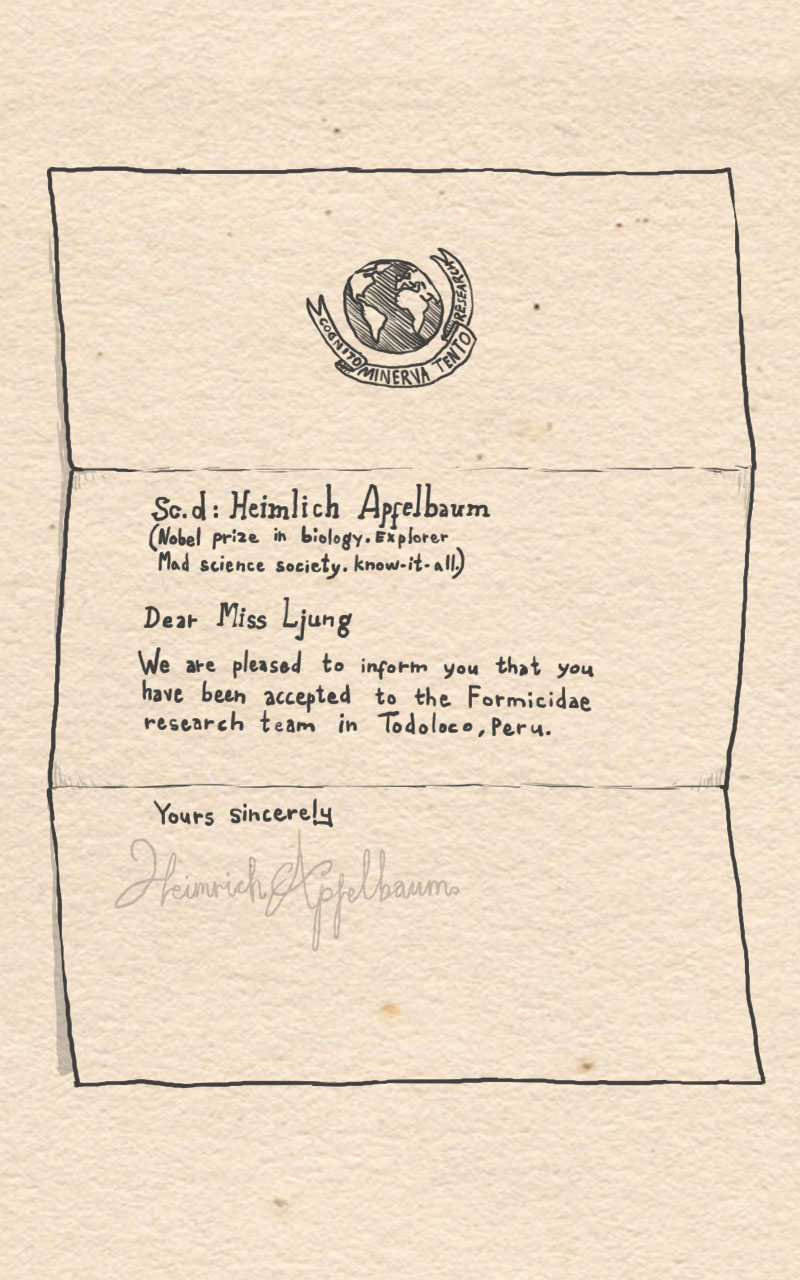 COGNITO MINERVA TENTO RESEARCH
Sc.d: Heimlich Apfelbaum
(Nobel prize in biology. Explorer
Mad science society. know-it-all.)
Dear Miss Ljung
We are pleased to inform you that you
have been accepted to the Formicidae
research team in Todoloco, Peru.
Yours sincerely
Heimrich Apfelbaum